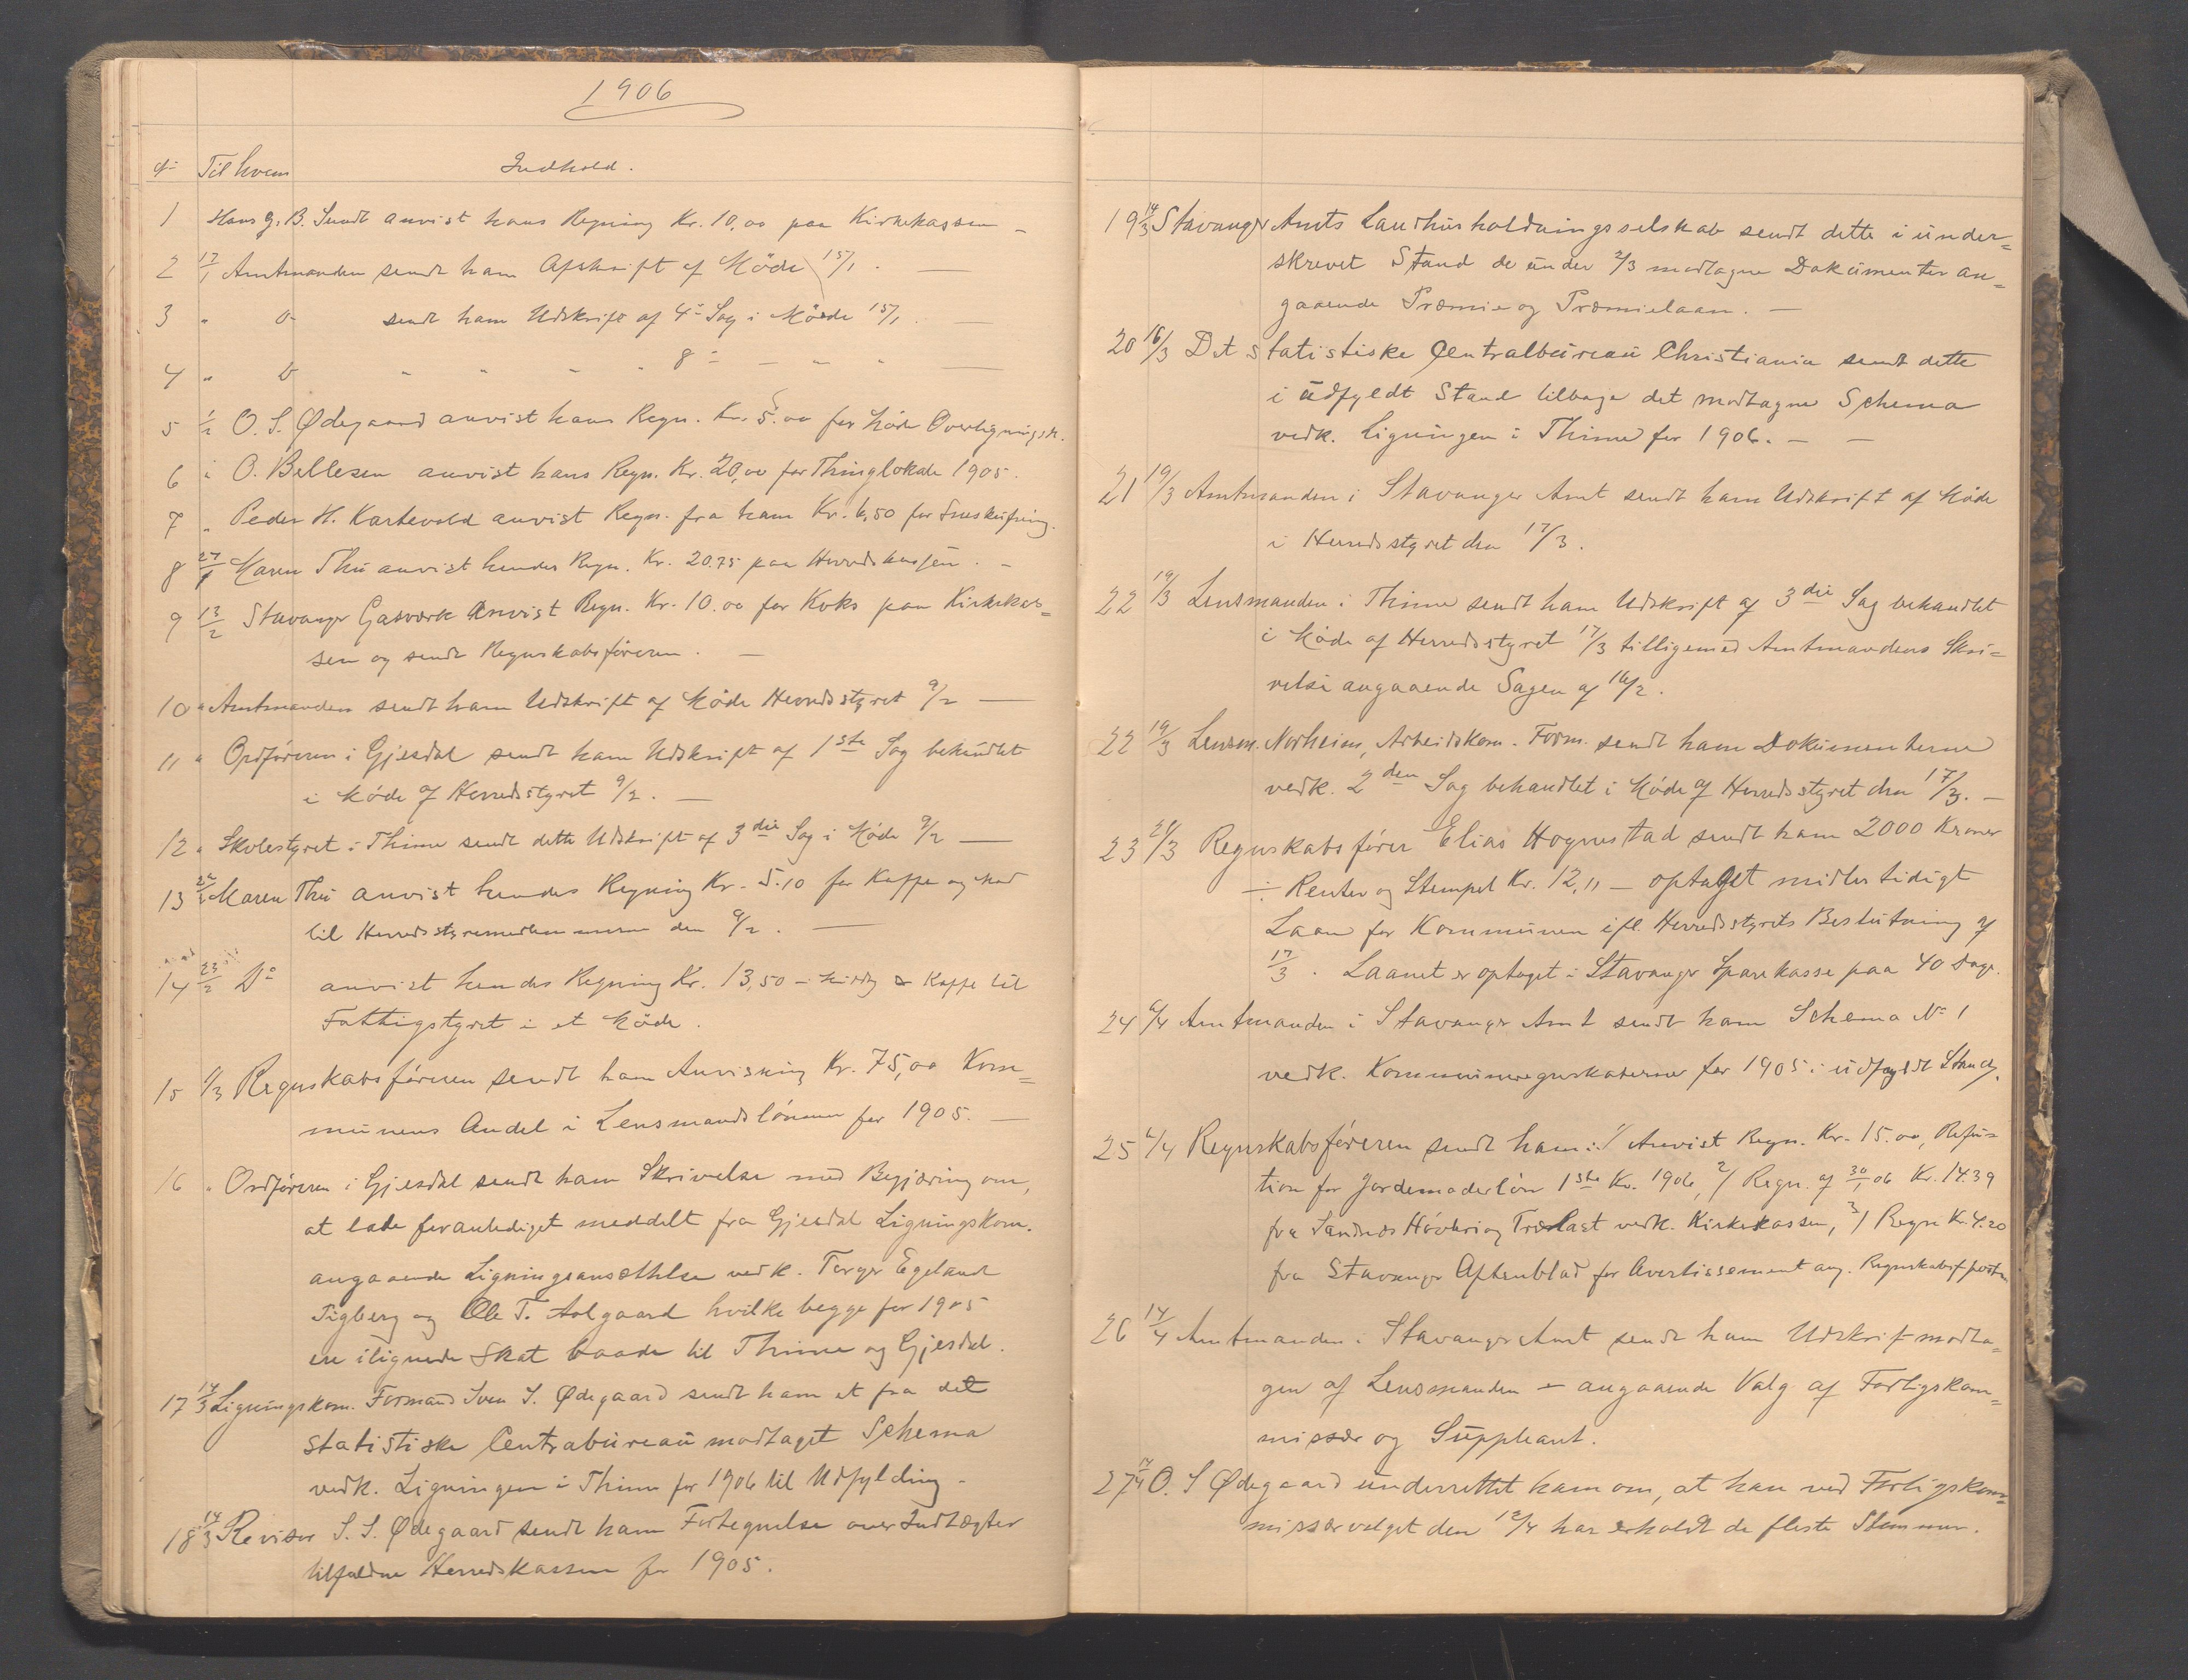 1906
Til hvem Indhold.
1 Hans G. B. Sundt anvist hans Regning Kr. 10,00 paa Kirkekassen –
2 17/1 Amtmanden sendt ham Afskrift af Möde 15/1. —
3 " Do sendt ham Udskrift af 4de Sag i Möde 15/1. —
4 " Do " " " " 8 – " " —
5 1/2 O. S. Ødegaard anvist hans Regn. Kr. 5.00 for Möde Overligningsk.
6 " O. Bellesen anvist hans Regn. Kr. 20,00 for Thinglokale 1905.
7 " Peder H. Kartevold anvist Regn. fra ham Kr. 6,50 for Sneskufning.
8 Maren Thu anvist hendes Regn. Kr. 20.75 paa Herredskassen. –
9 13/2 Stavanger Gasværk Anvist Regn. Kr. 10.00 for Koks paa Kirkekas=
sen og sendt Regnskabsföreren. —
10 " Amtmanden sendt ham Udskrift af Möde Herredsstyret 9/2 —
11 " Ordföreren i Gjesdal sendt ham Udskrift af 1ste Sag behandlet
i Möde af Herredsstyret 9/2. —
12 " Skolestyret i Thime sendt dette Udskrift af 3die Sag i Möde 9/2 —
13 22/2 Maren Thu anvist hendes Regning Kr. 5.10 for Kaffe og Mad
til Herredsstyremedlemmerne den 9/2. —
14 23/2 Do anvist hendes Regning Kr. 13,50 – Middag & Kaffe til
Fattigstyret i et Möde.
15 1/3 Regnskabsföreren sendt ham Anvisning Kr. 75,00 Kom=
munens Andel i Lensmandslönnen for 1905. —
16 " Ordföreren i Gjesdal sendt ham Skrivelse med Begjæring om,
at lade foranlediget meddelt fra Gjesdal Ligningskom.
angaaende Ligningsansættelse vedk. Torger Egeland
Tigberg og Ole T. Aalgaard hvilke begge for 1905
ere ilignede Skat baade til Thime og Gjesdal.
17 14/3 Ligningskom. Formand Sven S. Ødegaard sendt ham et fra det
statistiske Centrabureau modtaget Schema
vedk. Ligningen i Thime for 1906 til Udfylding –
18 14/3 Revisor S. S. Ødegaard sendt ham Fortegnelse over Indtægter
tilfaldne Herredskassen for 1905.
19 14/3 Stavanger Amts Landhusholdningsselskab sendt dette i under=
skrevet Stand de under 2/3 modtagne Dokumenter an=
gaaende Præmie og Præmielaan. —
20 16/3 Det statistiske Centralbureau Christiania sendt dette
i udfyldt Stand tilbage det modtagne Schema
vedk. ligningen i Thime for 1906. – –
21 19/3 Amtmanden i Stavanger Amt sendt ham Udskrift af Möde
i Herredsstyret den 17/3.
22 19/3 Lensmanden i Thime sendt ham Udskrift af 3die Sag behandlet
i Möde af Herredsstyret 17/3 tilligemed Amtmandens Skri=
velse angaaende Sagen af 16/2.
22 19/3 Lensm. Norheim, Arbeidskom. Form. sendt ham Dokumenterne
vedk. 2den Sag behandlet i Möde af Herredsstyret den 17/3. –
23 21/3 Regnskabsförer Elias Hognestad sendt ham 2000 Kroner
÷ Renter og Stempel Kr. 12,11 – optaget midlertidigt
Laan for Kommunen ifl. Herredsstyrets Beslutning af
17/3. Laanet er optaget i Stavanger Sparekasse paa 40 Dage.
24 6/4 Amtmanden i Stavanger Amt sendt ham Schema No 1
vedk. Kommuneregnskaberne for 1905 i udfyldt Stand.
25 6/4 Regnskabsföreren sendt ham: 1/ Anvist Regn. Kr. 15.00, Refu=
tion for Jordemoderlön 1ste Kv. 1906, 2/ Regn. af 30/1 06 Kr. 14.39
fra Sandnes Høvleri og Trælast vedk. Kirkekassen, 3/ Regn Kr. 4.20
fra Stavanger Aftenblad for Avertissement ang. Regnskabsf.posten
26 14/4 Amtmanden i Stavanger Amt sendt ham Udskrift modta=
gen af Lensmanden – angaaende Valg af Forligskom=
missær og Suppleant.
27 14/4 O. S Ødegaard underrettet ham om, at han ved Forligskom=
missærvalget den 12/4 har erholdt de fleste Stemmer.